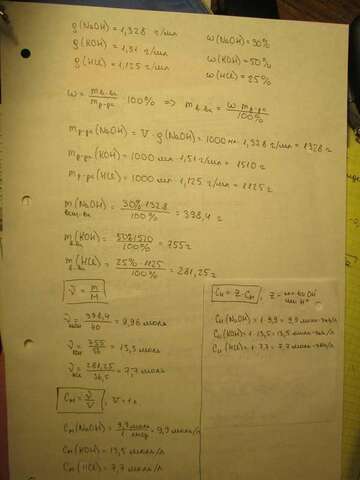 ρ(NaOH) = 1,328 г/мл ω(NaOH) = 30%
ρ(KOH) = 1,51 г/мл ω(KOH) = 50%
ρ(HCl) = 1,125 г/мл ω(HCl) = 25%
ω = m в-ва / m р-ра · 100% ⇒ m в-ва = ω · m р-ра / 100%
m р-ра (NaOH) = V · ρ(NaOH) = 1000 мл · 1,328 г/мл = 1328 г
m р-ра (KOH) = 1000 мл · 1,51 г/мл = 1510 г
m р-ра (HCl) = 1000 мл · 1,125 г/мл = 1125 г
m (NaOH) = 30% · 1328 / 100% = 398,4 г
m в-ва (KOH) = 50% · 1510 / 100% = 755 г
m в-ва (HCl) = 25% · 1125 / 100% = 281,25 г
ν = m / M
ν = 398,4 / 40 = 9,96 моль
ν = 755 / 56 = 13,5 моль
ν HCl = 281,25 / 36,5 = 7,7 моль
Cм = ν / V , V = 1 л
Cм (NaOH) = 9,9 моль / 1 литр = 9,9 моль/л
Cм (KOH) = 13,5 моль/л
Cм (HCl) = 7,7 моль/л
Cн = Z · Cм , Z – кол-во OH или H⁺
Cн (NaOH) = 1 · 9,9 = 9,9 моль-экв/л
Cн (KOH) = 1 · 13,5 = 13,5 моль-экв/л
Cн (HCl) = 1 · 7,7 = 7,7 моль-экв/л